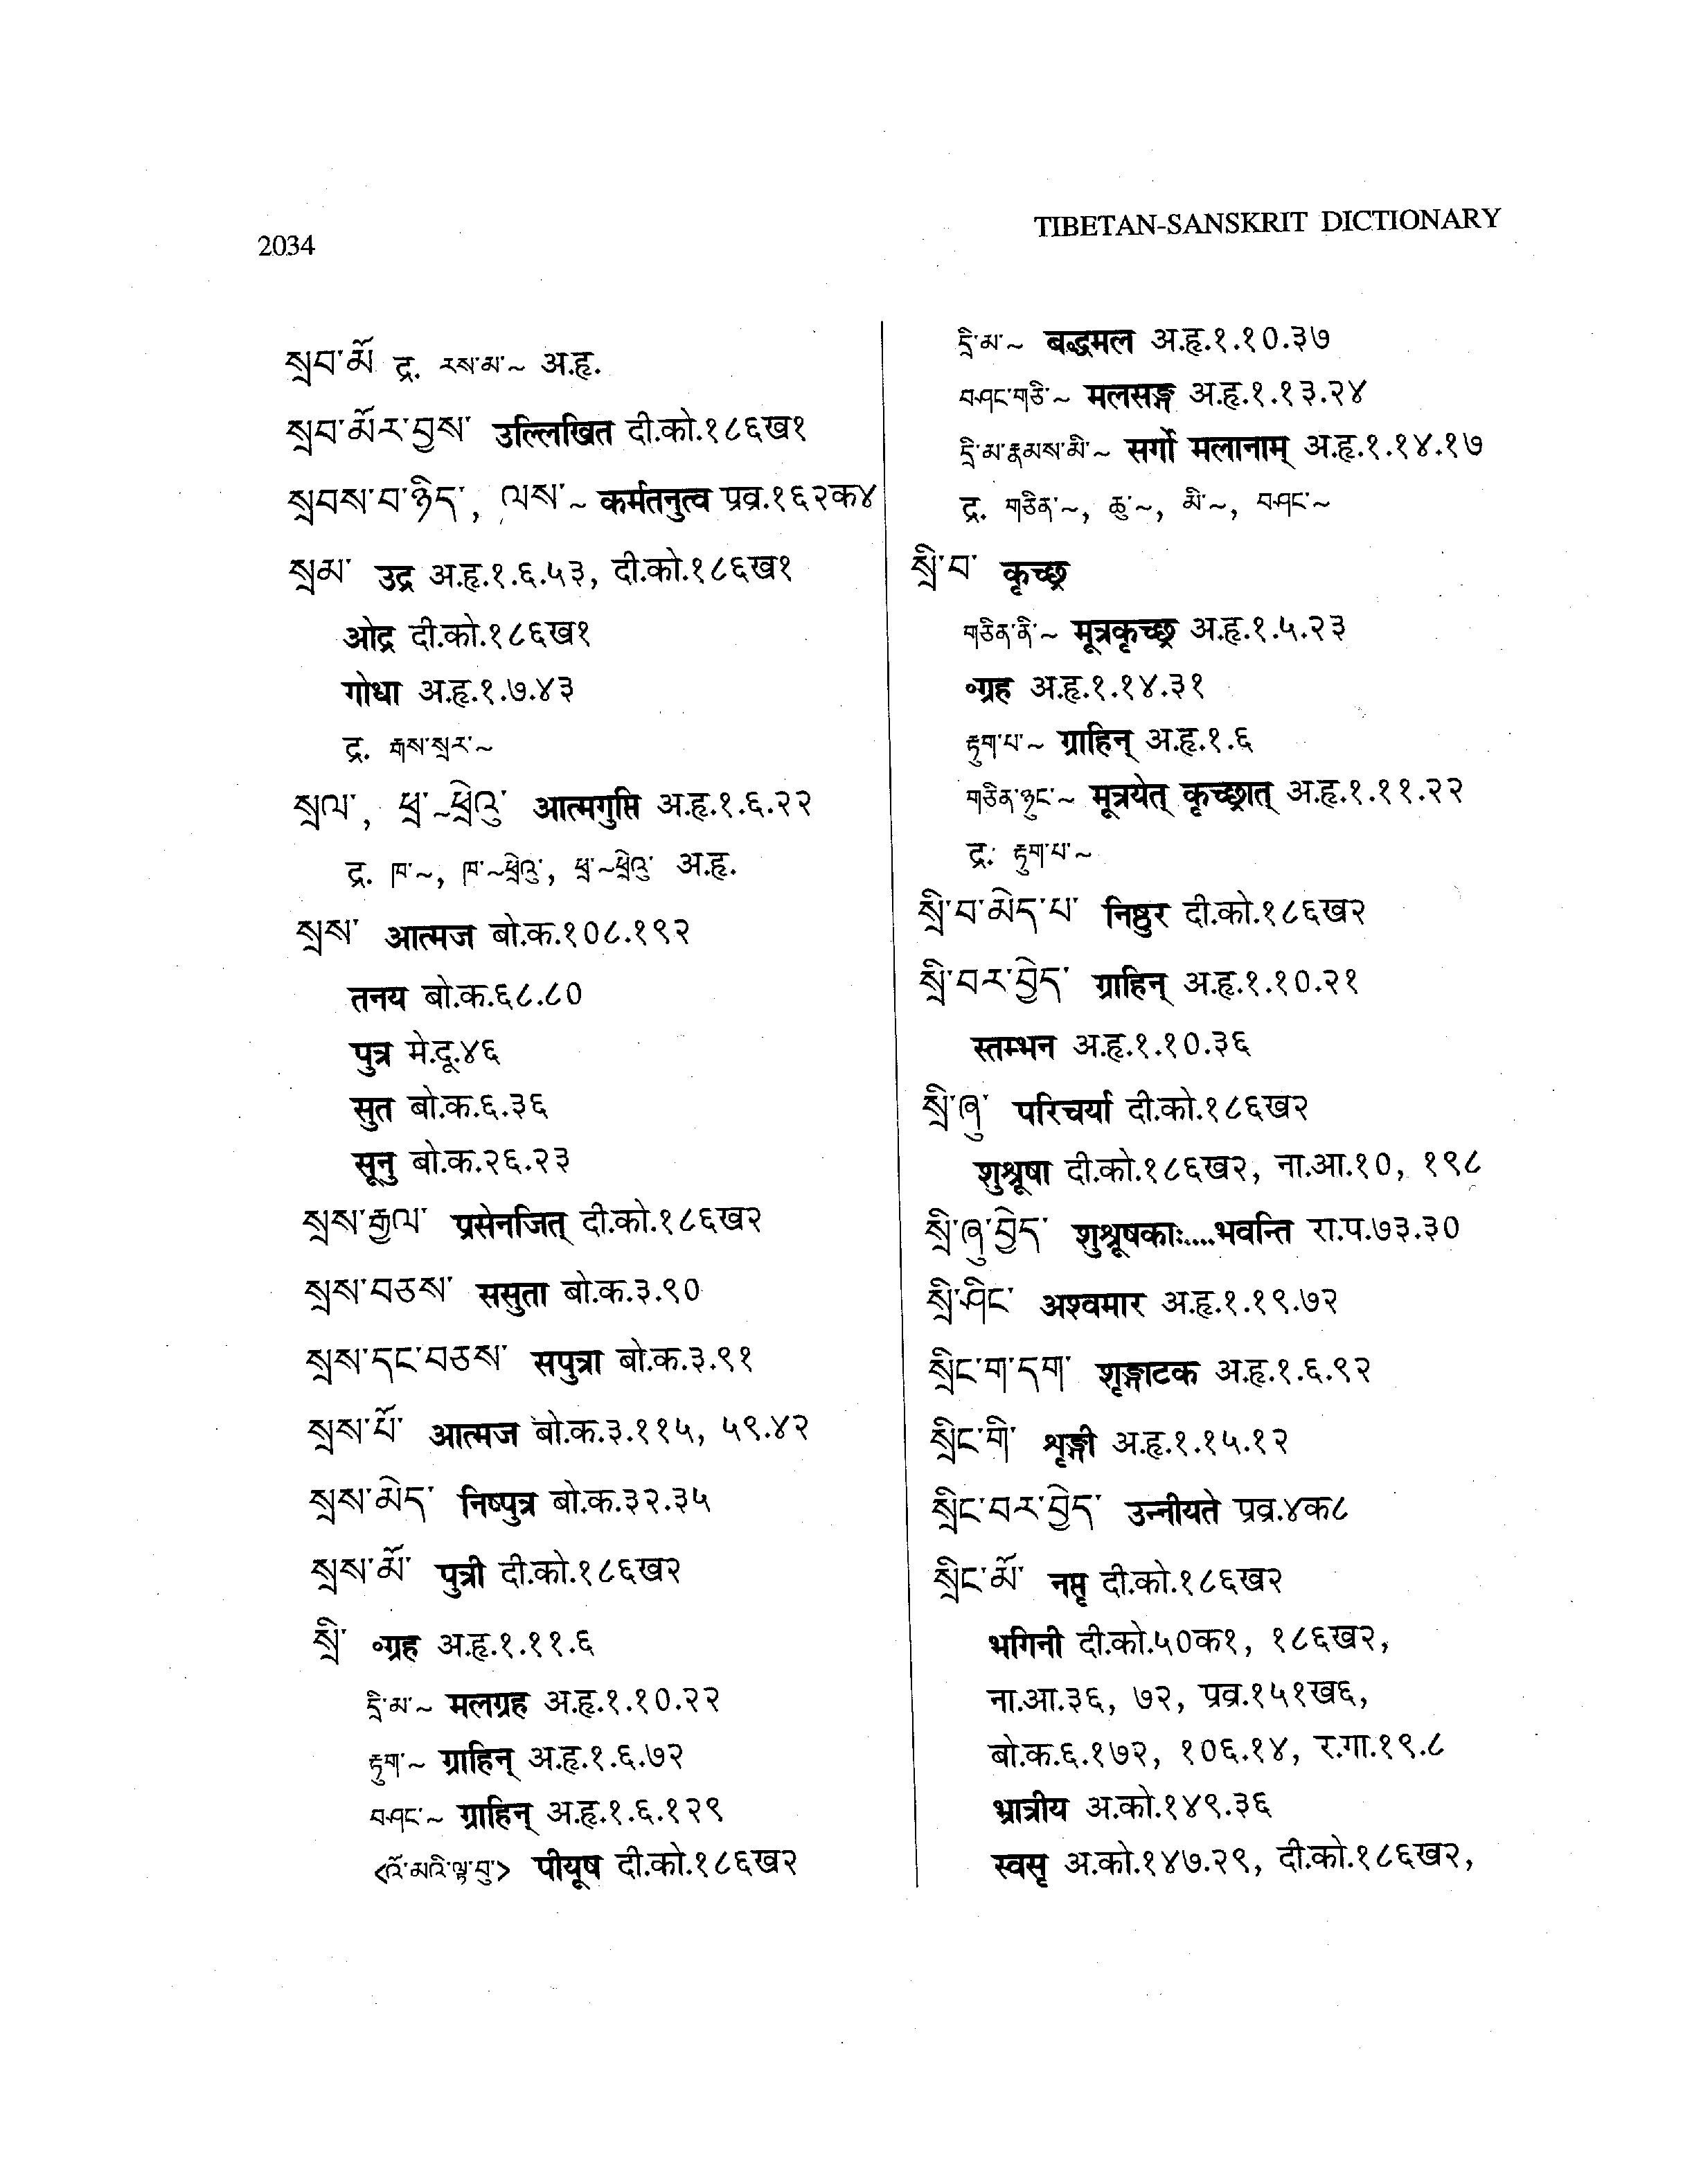 2034
TIBETAN-SANSKRIT DICTIONARY
སྲབ་མོ द्र. རས་མ་~ अ.हृ.
སྲབ་མོར་བྱས་ उल्लिखित दी.को.१८६ख१
སྲབས་བ་ཉིད་, ལས་~ कर्मतनुत्व प्रव्र.१६२क४
སྲམ་ उद्र अ.हृ.१.६.५३, दी.को.१८६ख१
ओद्र दी.को.१८६ख१
गोधा अ.हृ.१.७.४३
द्र. རྒས་སྲར་~
སྲལ་, ཕྲ་~ཕྲེའུ་ आत्मगुप्ति अ.हृ.१.६.२२
द्र. ཁ་~, ཁ་~ཕྲེའུ་, ཕྲ་~ཕྲེའུ་ अ.हृ.
སྲས་ आत्मज बो.क.१०८.१९२
तनय बो.क.६८.८०
पुत्र मे.दू.४६
सुत बो.क.६.३६
सूनु बो.क.२६.२३
སྲས་རྒྱལ་ प्रसेनजित् दी.को.१८६ख२
སྲས་བཅས་ ससुता बो.क.३.९०
སྲས་དང་བཅས་ सपुत्रा बो.क.३.९१
སྲས་པོ་ आत्मज बो.क.३.११५, ५९.४२
སྲས་མེད་ निष्पुत्र बो.क.३२.३५
སྲས་མོ་ पुत्री दी.को.१८६ख२
སྲི་ ॰ग्रह अ.हृ.१.११.६
དྲི་མ་~ मलग्रह अ.हृ.१.१०.२२
རྟུག་~ ग्राहिन् अ.हृ.१.६.७२
བཤང་~ ग्राहिन् अ.हृ.१.६.१२९
<འོ་མའི་ལྟ་བུ་> पीयूष दी.को.१८६ख२
དྲི་མ་~ बद्धमल अ.हृ.१.१०.३७
བཤང་གཅི་~ मलसङ्ग अ.हृ.१.१३.२४
དྲི་མ་རྣམས་མི་~ सर्गो मलानाम् अ.हृ.१.१४.१७
द्र. གཅིན་~, ཆུ་~, མི་~, བཤང་~
སྲི་བ་ कृच्छ्र
གཅིན་ནི་~ मूत्रकृच्छ्र अ.हृ.१.५.२३
॰ग्रह अ.हृ.१.१४.३१
རྟུག་པ་~ ग्राहिन् अ.हृ.१.६
གཅིན་ཉུང་~ मूत्रयेत् कृच्छ्रात् अ.हृ.१.११.२२
द्र. རྟུག་པ་~
སྲི་བ་མེད་པ་ निष्ठुर दी.को.१८६ख२
སྲི་བར་བྱེད་ ग्राहिन् अ.हृ.१.१०.२१
स्तम्भन अ.हृ.१.१०.३६
སྲི་ཞུ་ परिचर्या दी.को.१८६ख२
शुश्रूषा दी.को.१८६ख२, ना.आ.१०, १९८
སྲི་ཞུ་བྱེད་ शुश्रूषकाः....भवन्ति रा.प.७३.३०
སྲི་ཤིང་ अश्वमार अ.हृ.१.१९.७२
སྲིང་ག་དག་ शृङ्गाटक अ.हृ.१.६.९२
སྲིང་གི་ शृङ्गी अ.हृ.१.१५.१२
སྲིང་བར་བྱེད་ उन्नीयते प्रव्र.४क८
སྲིང་མོ་ नप्तृ दी.को.१८६ख२
भगिनी दी.को.५०क१, १८६ख२,
ना.आ.३६, ७२, प्रव्र.१५१ख६,
बो.क.६.१७२, १०६.१४, र.गा.१९.८
भ्रात्रीय अ.को.१४९.३६
स्वसृ अ.को.१४७.२९, दी.को.१८६ख२,